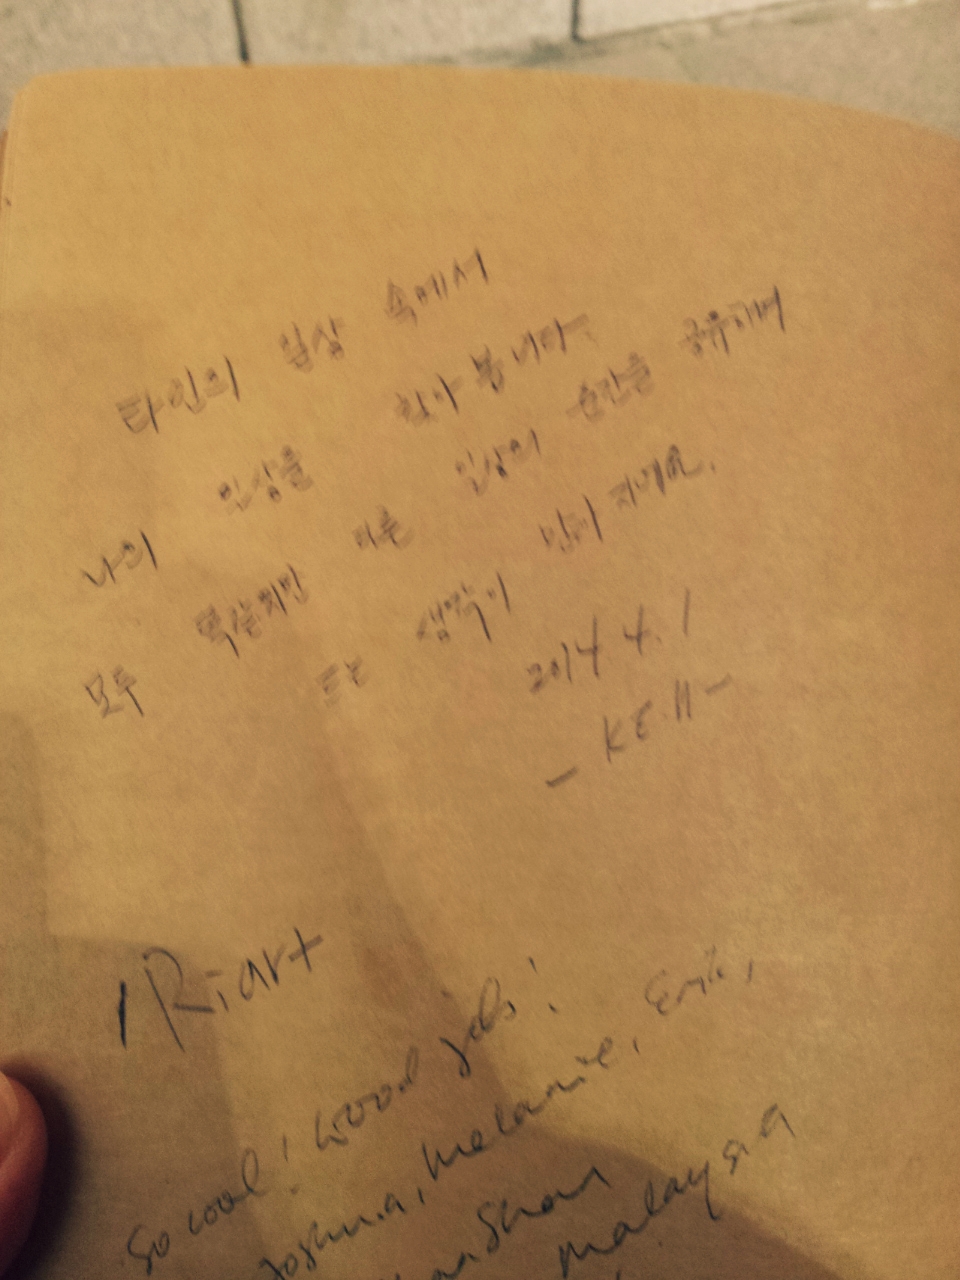 타인의 일상 속에서
나의 일상을 찾아 봅니다.
모두 똑같지만 다른 일상의 순간을 공유하며
드는 생각이 많아 지네요.
2014 4. 1
- KE.H -
Riart
So cool! Good job!
Joshua, Melanie,
Shan
Malaysia